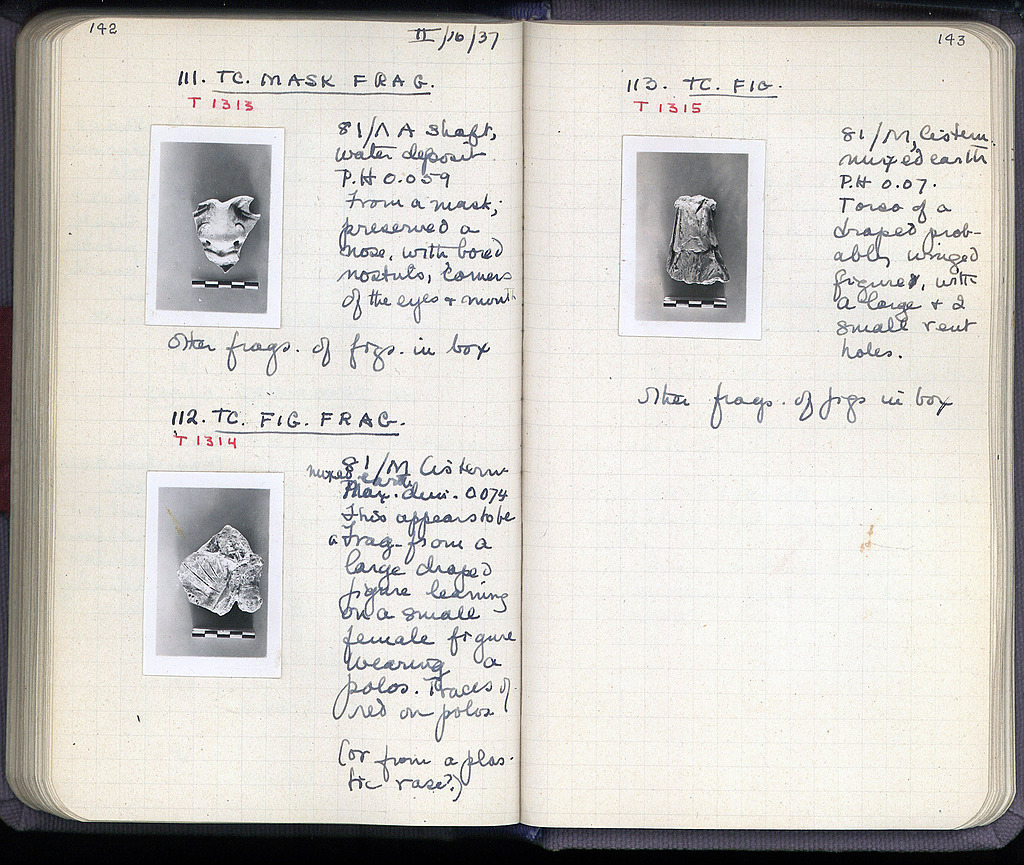 142
II/16/37
111. TC. MASK FRAG.
T 1313
81/Λ A shaft,
water deposit
P.H 0.059
From a mask;
preserved a
nose, with bored
nostrils, corners
of the eyes + mouth
Other frags. of figs. in box
112. TC. FIG. FRAG.
T 1314
81/M Cistern
mixed earth
Max. dim. 0.074
This appears to be
a frag. from a
large draped
figure leaning
on a small
female figure
wearing a
polos. Traces of
red on polos
(or from a plas-
tic vase?)
143
113. TC. FIG.
T 1315
81/M, Cistern.
mixed earth
P.H 0.07.
Torso of a
draped prob-
ably winged
figure, with
a large + 2
small vent
holes.
Other frags. of figs in box